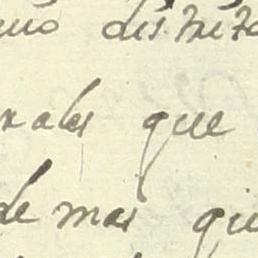 distrito
rales que
demas qu